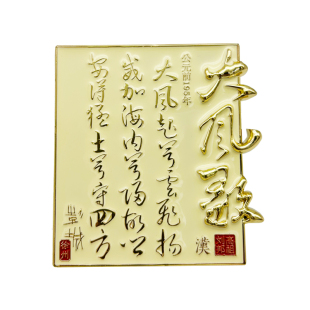 大風歌
公元前195年
大風起兮雲飛揚
威加海内兮歸故鄉
安得猛士兮守四方
漢
高祖刘邦
徐州